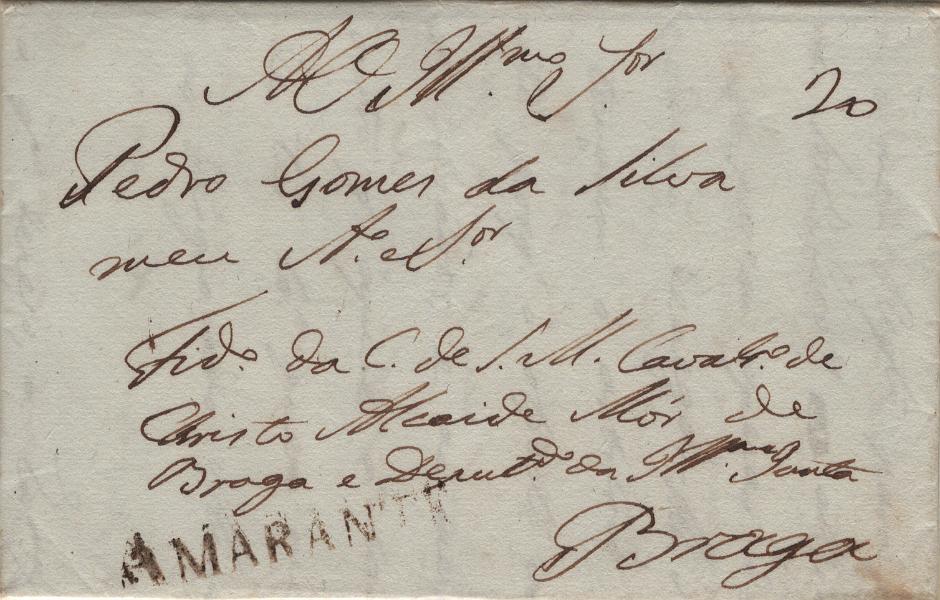 Ao Illmo Sor
20
Pedro Gomes da Silva
meu Ao e Sor
Fido da C. de S. M. Cavalro de
Christo Alcaide Mór de
Braga e Deputdo da Illma Junta
AMARANTE
Braga